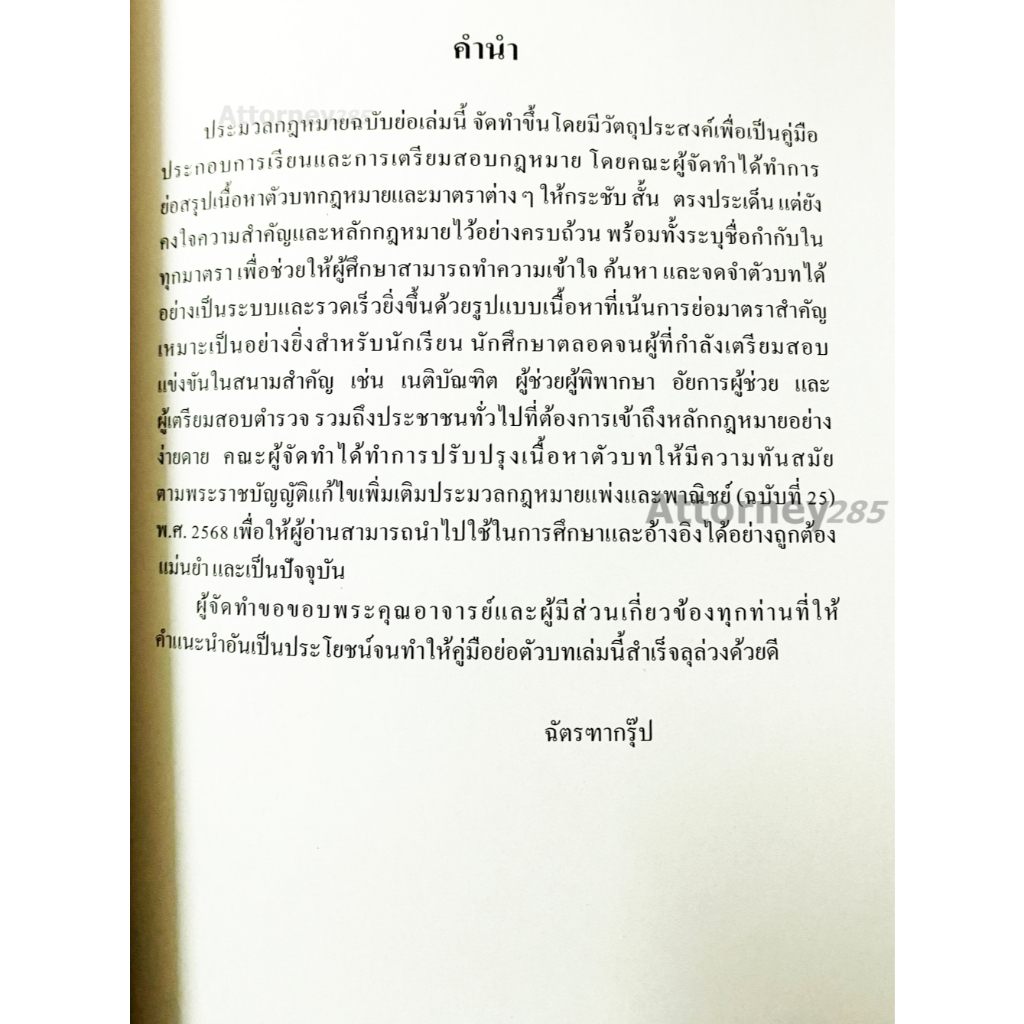 คำนำ
Attorney285
ประมวลกฎหมายฉบับย่อเล่มนี้ จัดทำขึ้นโดยมีวัตถุประสงค์เพื่อเป็นคู่มือ
ประกอบการเรียนและการเตรียมสอบกฎหมาย โดยคณะผู้จัดทำได้ทำการ
ย่อสรุปเนื้อหาตัวบทกฎหมายและมาตราต่าง ๆ ให้กระชับ สั้น ตรงประเด็น แต่ยัง
คงใจความสำคัญและหลักกฎหมายไว้อย่างครบถ้วน พร้อมทั้งระบุชื่อกำกับใน
ทุกมาตรา เพื่อช่วยให้ผู้ศึกษาสามารถทำความเข้าใจ ค้นหา และจดจำตัวบทได้
อย่างเป็นระบบและรวดเร็วยิ่งขึ้นด้วยรูปแบบเนื้อหาที่เน้นการย่อมาตราสำคัญ
เหมาะเป็นอย่างยิ่งสำหรับนักเรียน นักศึกษาตลอดจนผู้ที่กำลังเตรียมสอบ
แข่งขันในสนามสำคัญ เช่น เนติบัณฑิต ผู้ช่วยผู้พิพากษา อัยการผู้ช่วย และ
ผู้เตรียมสอบตำรวจ รวมถึงประชาชนทั่วไปที่ต้องการเข้าถึงหลักกฎหมายอย่าง
ง่ายดาย คณะผู้จัดทำได้ทำการปรับปรุงเนื้อหาตัวบทให้มีความทันสมัย
ตามพระราชบัญญัติแก้ไขเพิ่มเติมประมวลกฎหมายแพ่งและพาณิชย์ (ฉบับที่ 25)
Attorney285
พ.ศ. 2568 เพื่อให้ผู้อ่านสามารถนำไปใช้ในการศึกษาและอ้างอิงได้อย่างถูกต้อง
แม่นยำ และเป็นปัจจุบัน
ผู้จัดทำขอขอบพระคุณอาจารย์และผู้มีส่วนเกี่ยวข้องทุกท่านที่ให้
คำแนะนำอันเป็นประโยชน์จนทำให้คู่มือย่อตัวบทเล่มนี้สำเร็จลุล่วงด้วยดี
ฉัตรฑากรุ๊ป